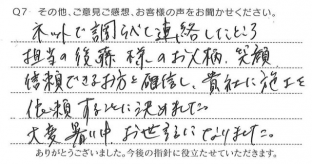 Q7 その他、ご意見ご感想、お客様の声をお聞かせください。
ネットで調べて連絡したところ
担当の後藤様のお人柄、笑顔
信頼できるお方と確信し、貴社に施工を
依頼することに決めました。
大変暑い中お世話になりました。
ありがとうございました。今後の指針に役立たせていただきます。